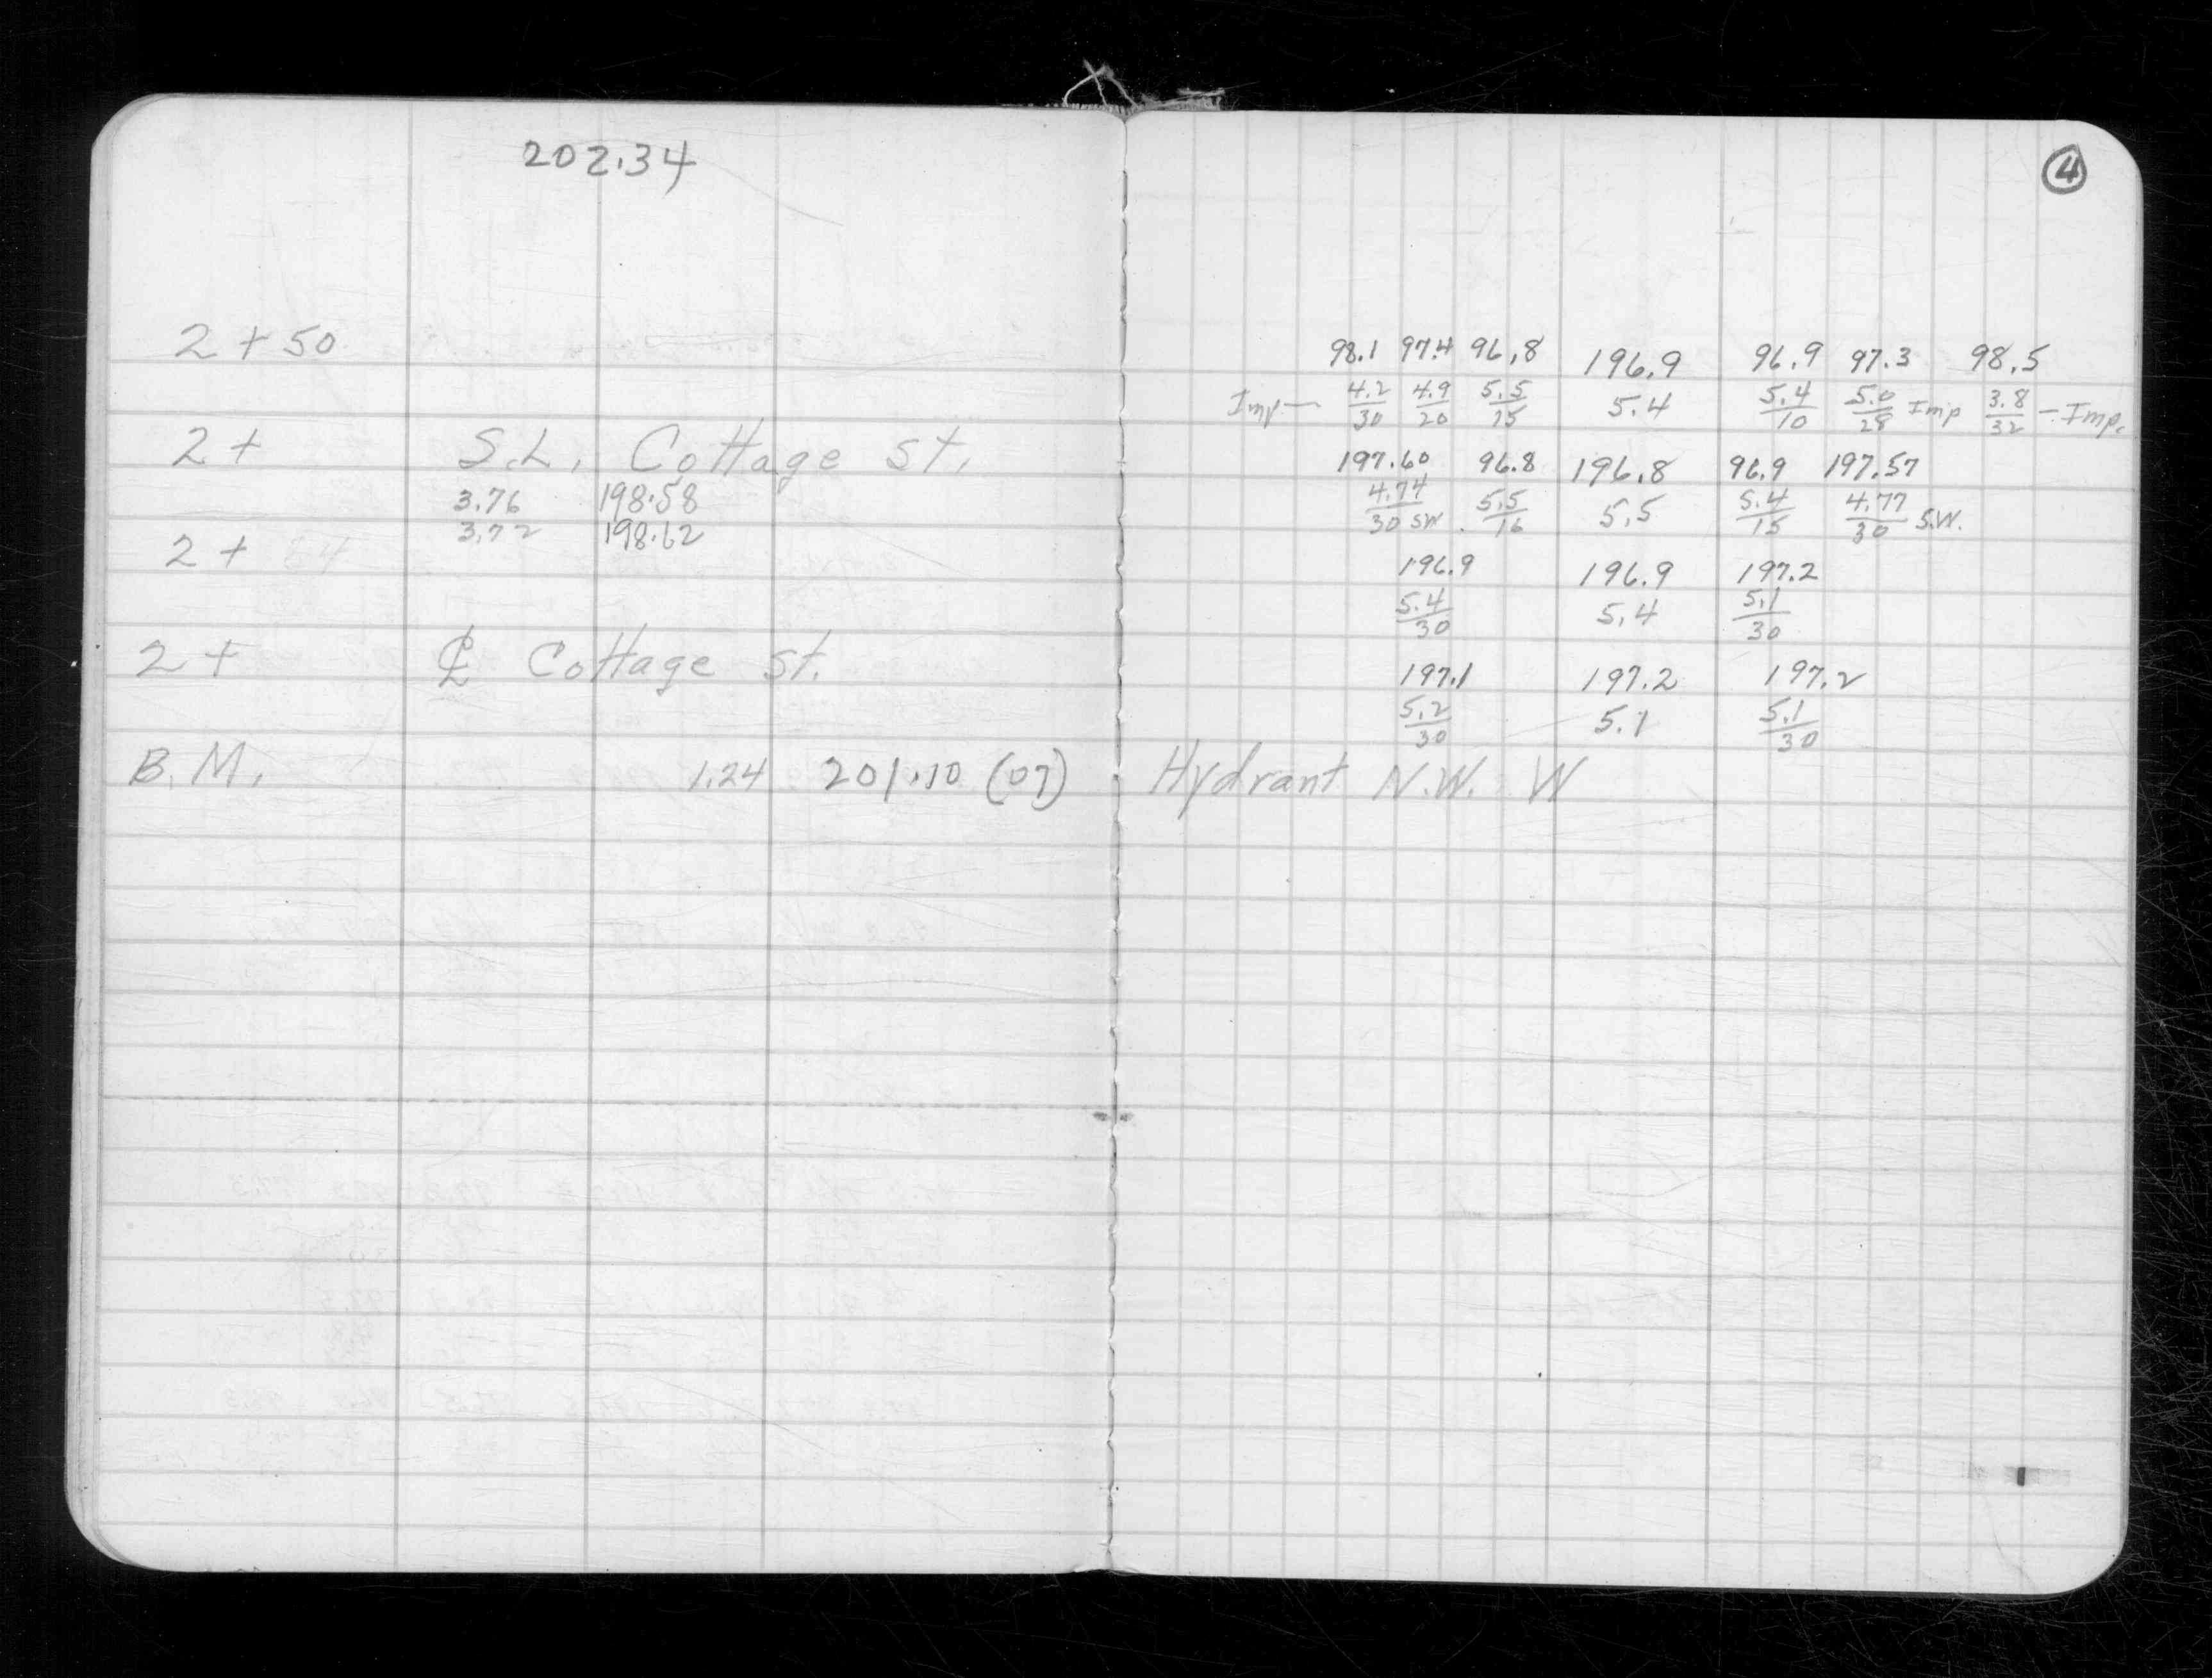 202.34
2 + 50
2 + S.L. Cottage St.
3.76 198.58
3.72 198.62
2 +
2 + ℄ Cottage St.
B.M. 1.24 201.10 (07)
4
98.1 97.4 96.8 196.9 96.9 97.3 98.5
Imp— 4.2/30 4.9/20 5.5/15 5.4 5.4/10 5.0/28 Imp 3.8/32 — Imp.
197.60 96.8 196.8 96.9 197.57
4.74/30 SW. 5.5/16 5.5 5.4/15 4.77/30 S.W.
196.9 196.9 197.2
5.4/30 5.4 5.1/30
197.1 197.2 197.2
5.2/30 5.1 5.1/30
Hydrant N.W. W